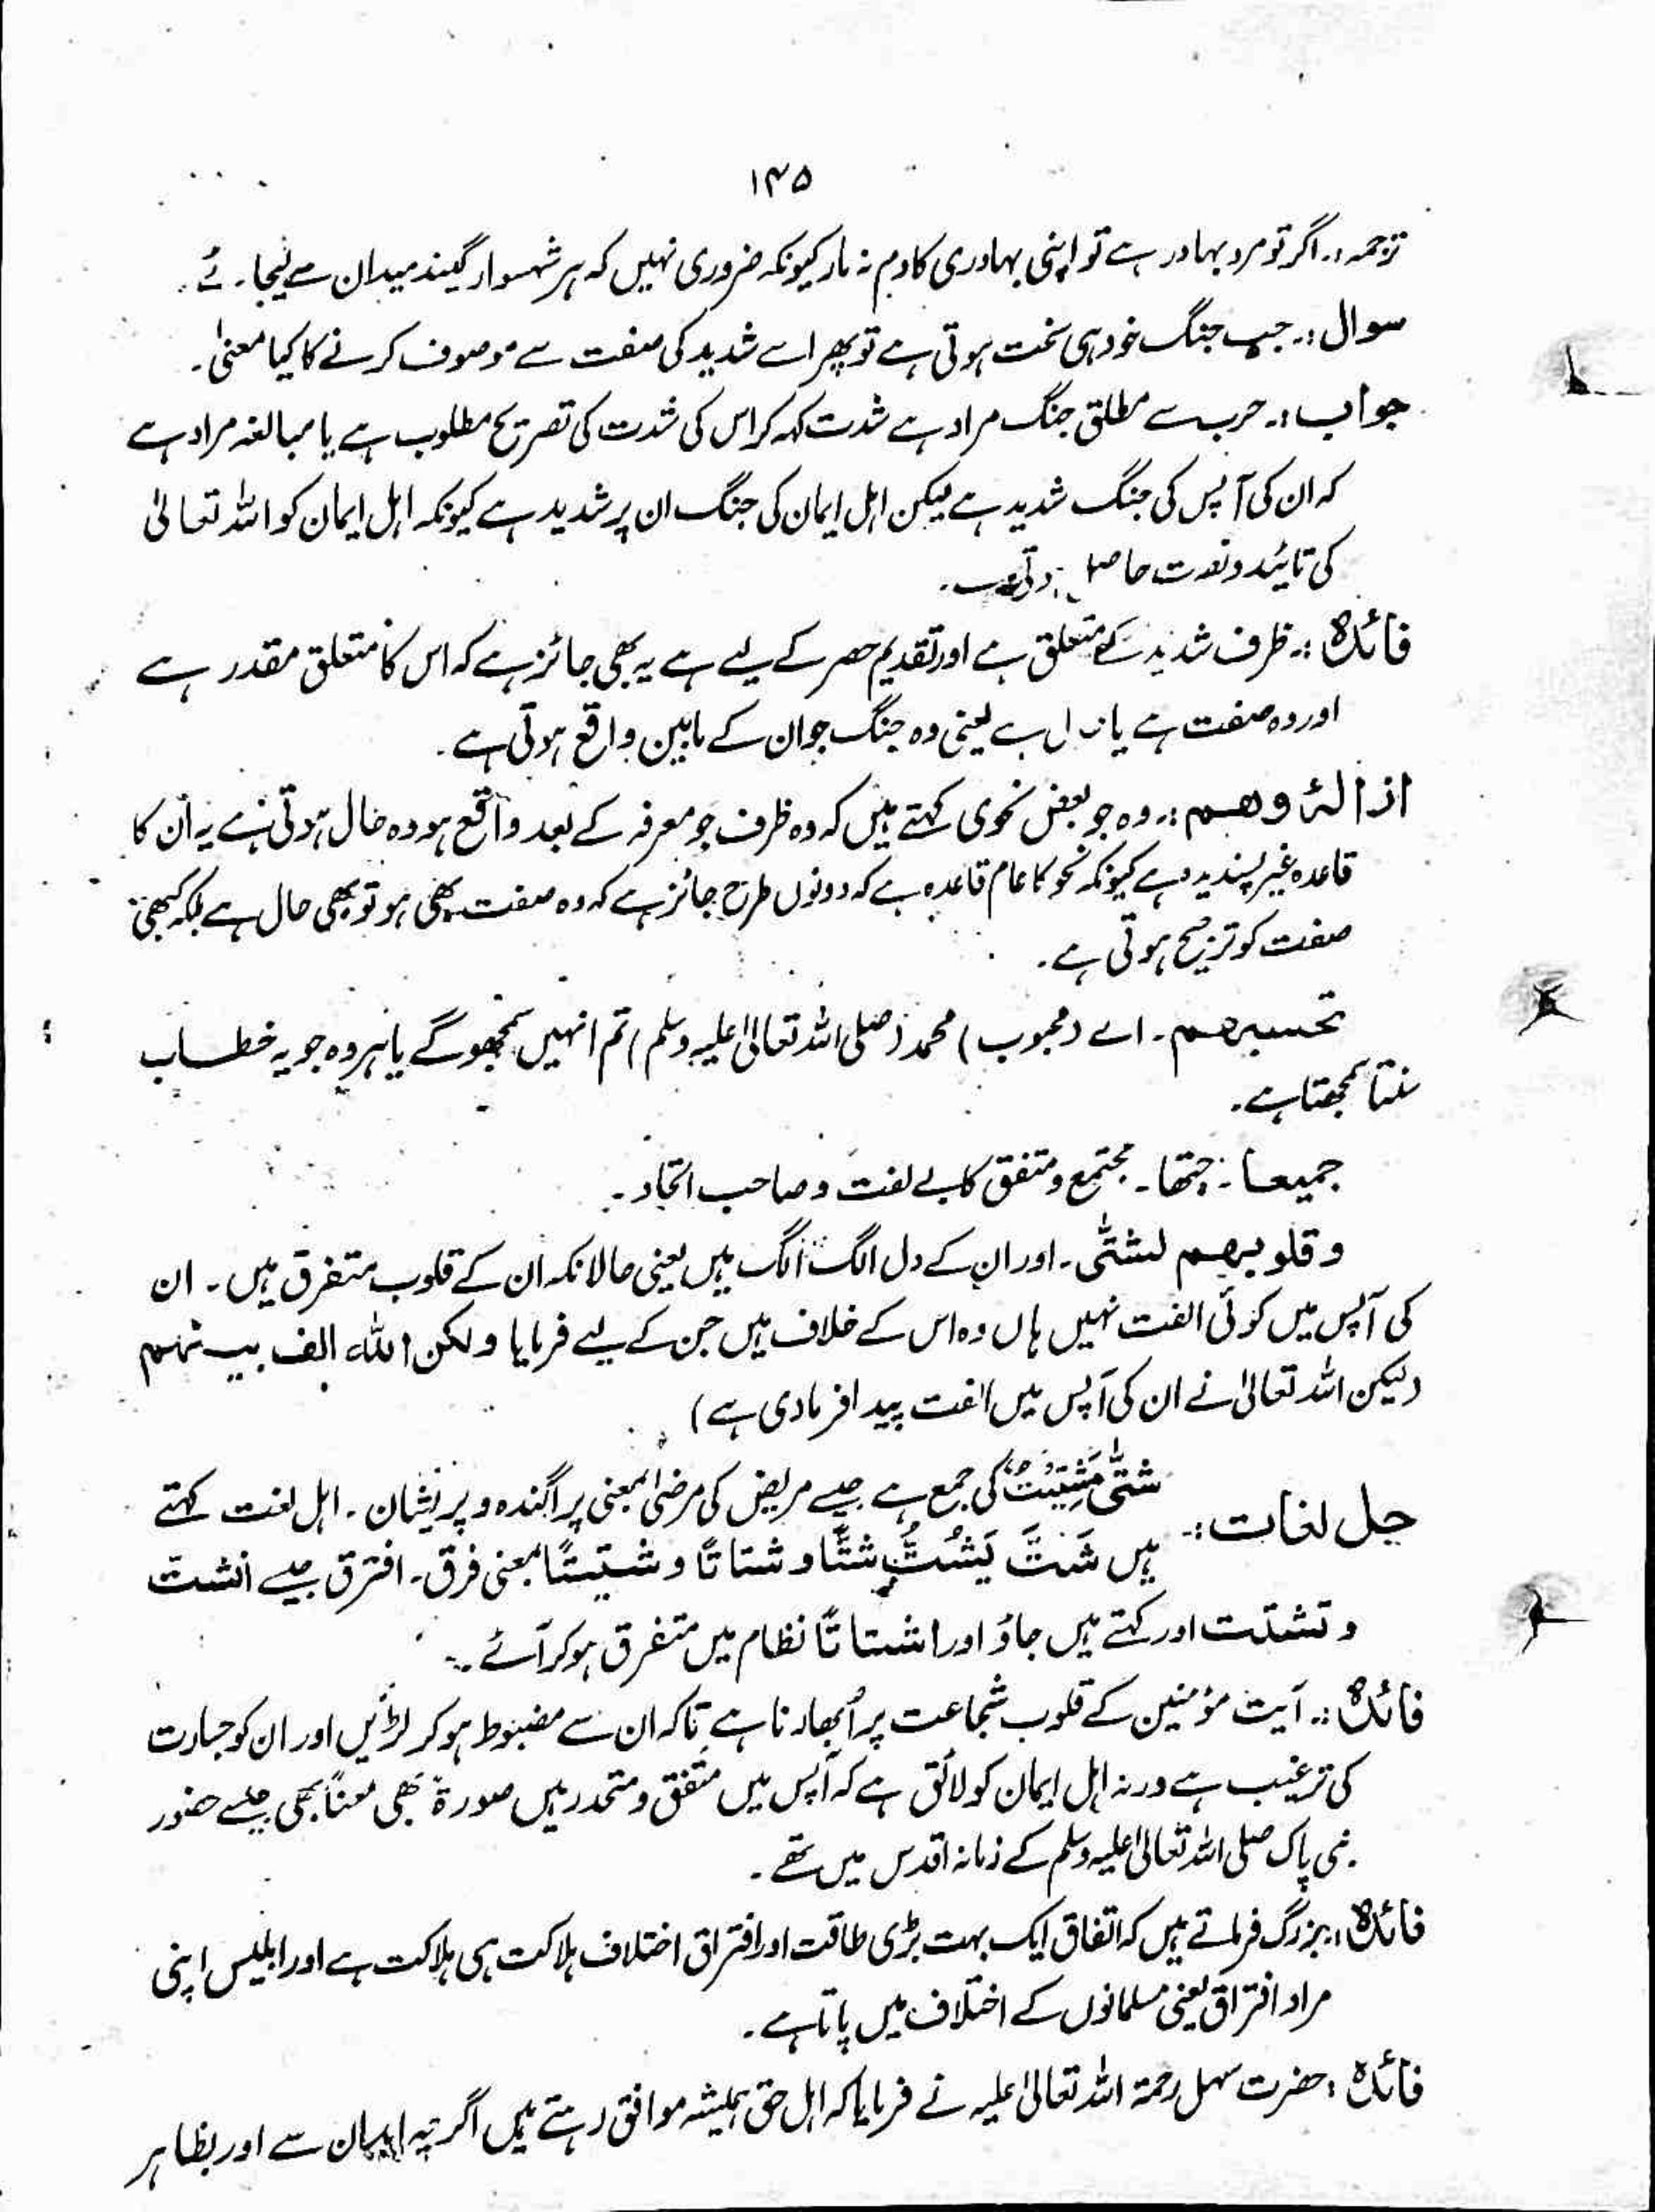 ۱۴۵
ترجمہ :۔ اگر تو مرد بہادر ہے تو اپنی بہادری کا دم نہ مار کیونکہ ضروری نہیں کہ ہر شہسوار گیند میدان سے لیجائے۔
سوال :۔ جب جنگ خود ہی سخت ہوتی ہے تو پھر اسے شدید کی صفت سے موصوف کرنے کا کیا معنیٰ۔
جواب :۔ حرب سے مطلق جنگ مراد ہے شدت کہہ کر اس کی شدت کی تصریح مطلوب ہے یا مبالغہ مراد ہے
کہ ان کی آپس کی جنگ شدید ہے لیکن اہل ایمان کی جنگ ان پر شدید ہے کیونکہ اہل ایمان کو اللہ تعالیٰ
کی تائید و نصرت حاصل ہوتی ہے۔
فائدہ :۔ ظرف شدید کے متعلق ہے اور تقدیم حصر کے لیے ہے یہ بھی جائز ہے کہ اس کا متعلق مقدر ہے
اور وہ صفت ہے یا حال ہے یعنی وہ جنگ جو ان کے مابین واقع ہوتی ہے۔
ازالۂ وھم :۔ وہ جو بعض نحوی کہتے ہیں کہ وہ ظرف جو معرفہ کے بعد واقع ہو وہ حال ہوتی ہے یہ ان کا
قاعدہ غیر پسندیدہ ہے کیونکہ نحو کا عام قاعدہ ہے کہ دونوں طرح جائز ہے کہ وہ صفت بھی ہو تو بھی حال ہے بلکہ کبھی
صفت کو ترجیح ہوتی ہے۔
تحسبھم۔ اے (محبوب) محمد (صلی اللہ تعالیٰ علیہ وسلم) تم انہیں سمجھو گے یا ہر وہ جو یہ خطاب
سنتا سمجھتا ہے۔
جمیعا۔ جتھا۔ مجتمع و متفق کا ہے لفت و صاحب اتحاد۔
و قلوبھم لشتّٰی۔ اور ان کے دل الگ الگ ہیں یعنی حالانکہ ان کے قلوب متفرق ہیں۔ ان
کی آپس میں کوئی الفت نہیں ہاں وہ اس کے خلاف ہیں جن کے لیے فرمایا ولکن اللہ الف بینھم
(لیکن اللہ تعالیٰ نے ان کی آپس میں الفت پیدا فرما دی ہے)
حل لغات :۔ شتّٰی شَتِیْتٌ کی جمع ہے جیسے مریض کی مرضیٰ بمعنی پراگندہ و پریشان۔ اہل لغت کہتے
ہیں شَتَّ یَشُتُّ شتًّا و شتاتًا و شتیتًا بمعنی فرق۔ افترق جیسے انشت
و تشتت اور کہتے ہیں جاؤ اور اشتاتًا نظام میں متفرق ہو کر آئے۔
فائدہ :۔ آیت مؤمنین کے قلوب شجاعت پر اُبھارنا ہے تاکہ ان سے مضبوط ہو کر لڑئیں اور ان کو جسارت
کی ترغیب ہے ورنہ اہل ایمان کو لائق ہے کہ آپس میں متفق و متحد رہیں صورۃً بھی معناً بھی جیسے حضور
نبی پاک صلی اللہ تعالیٰ علیہ وسلم کے زمانہ اقدس میں تھے۔
فائدہ :۔ بزرگ فرماتے ہیں کہ اتفاق ایک بہت بڑی طاقت اور افتراق اختلاف ہلاکت ہی ہلاکت ہے اور ابلیس اپنی
مراد افتراق یعنی مسلمانوں کے اختلاف میں پاتا ہے۔
فائدہ : حضرت سہل رحمۃ اللہ تعالیٰ علیہ نے فرمایا کہ اہل حق ہمیشہ موافق رہتے ہیں اگرچہ ابدان سے اور بظاہر